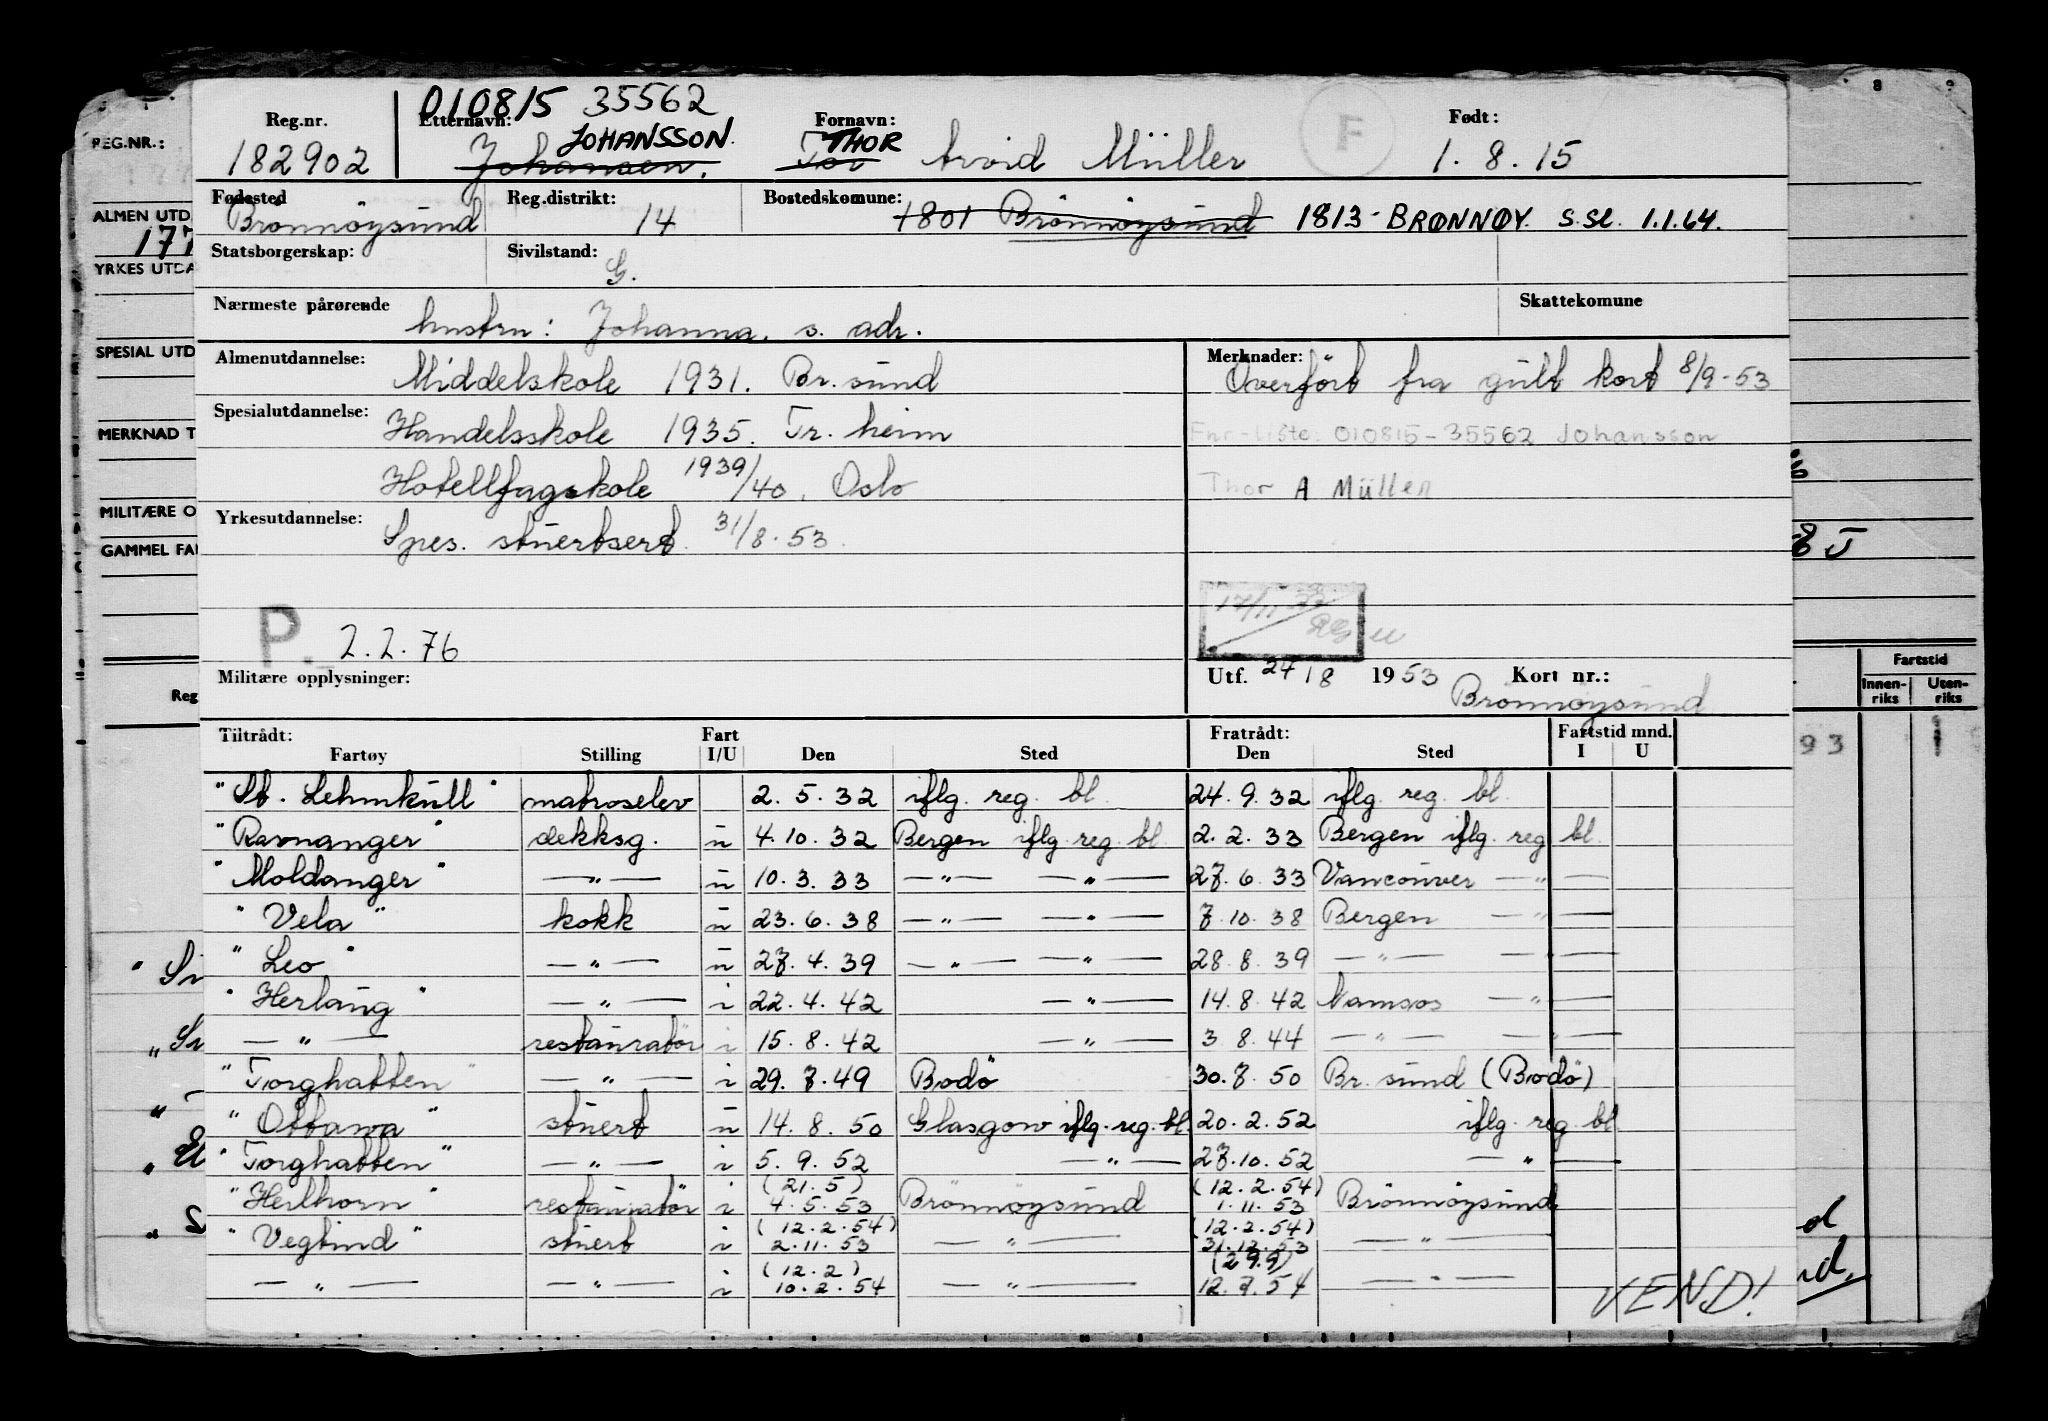 010815 35562
Reg.nr. Etternavn: Fornavn: F Født:
182902 Johansen. JOHANSSON. Tor THOR Arvid Müller 1. 8. 15
Fødested Reg.distrikt: Bostedskomune:
Brönnöysund 14 1801 Brönnöysund 1813 - BRØNNØY. s.sl. 1.1.64.
Statsborgerskap: Sivilstand: G.
Nærmeste pårørende Skattekomune
hustru: Johanna. s. adr.
Almenutdannelse: Merknader:
Middelskole 1931. Br. sund Överfört fra gult kort 8/9-53
Spesialutdannelse:
Handelsskole 1935. Tr. heim Fnr-liste: 010815-35562 Johansson
Hotellfagskole 1939/40. Oslo Thor A Müller
Yrkesutdannelse:
Spes. stuertsert. 31/8. 53.
P. 2.2.76
Militære opplysninger: Utf. 24/8 1953 Kort nr.:
Brönnöysund
Tiltrådt: Fart Fratrådt: Fartstid mnd.
Fartøy Stilling I/U Den Sted Den Sted I U
"St. Lehmkull" matroselev 2. 5. 32 iflg. reg. bl. 24. 9. 32 iflg. reg. bl.
"Ravnanger" dekksg. u 4. 10. 32 Bergen iflg. reg. bl. 2. 2. 33 Bergen iflg. reg bl.
"Moldanger" — " — u 10. 3. 33 — " — — " — 27. 6. 33 Vancouver — " —
"Vela" kokk u 23. 6. 38 — " — — " — 7. 10. 38 Bergen — " —
"Leo" — " — u 27. 4. 39 — " — — " — 28. 8. 39 — " — — " —
"Herlaug" — " — i 22. 4. 42 — " — 14. 8. 42 Namsos — " —
— " — restauratör i 15. 8. 42 — " — 3 8. 44 — " — — " —
"Torghatten" — " — i 29. 7. 49 Bodö 30. 7. 50 Br. sund (Bodö)
"Ottawa" stuert u 14. 8. 50 Glasgow iflg. reg. bl. 20. 2. 52 iflg. reg. bl
"Torghatten" — " — i 5. 9. 52 — " — 27. 10. 52 — " —
(21. 5) (12. 2. 54)
"Herlhorn" restauratör i 4. 5. 53 Brönnöysund 1. 11. 53 Brönnöysund
(12. 2. 54) (12. 2. 54)
"Vegtind" stuert i 2. 11. 53 — " — 31. 12. 53 — " —
(12. 2) (29.9)
— " — — " — i 10. 2. 54 — " — 12. 7. 54 — " —
VEND!
REG.NR.:
ALMEN UTD
177
YRKES UTDA
SPESIAL UTD
MERKNAD T
MILITÆRE O
GAMMEL FA
Reg
Fartstid
Innen-riks Uten-riks
93 1